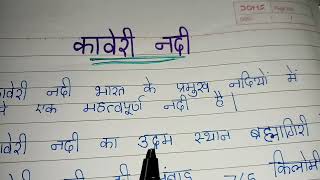 कावेरी नदी
कावेरी नदी भारत के प्रमुख नदियों में
एक महत्वपूर्ण नदी है |
कावेरी नदी का उद्गम स्थान ब्रह्मागिरी
किलोमी